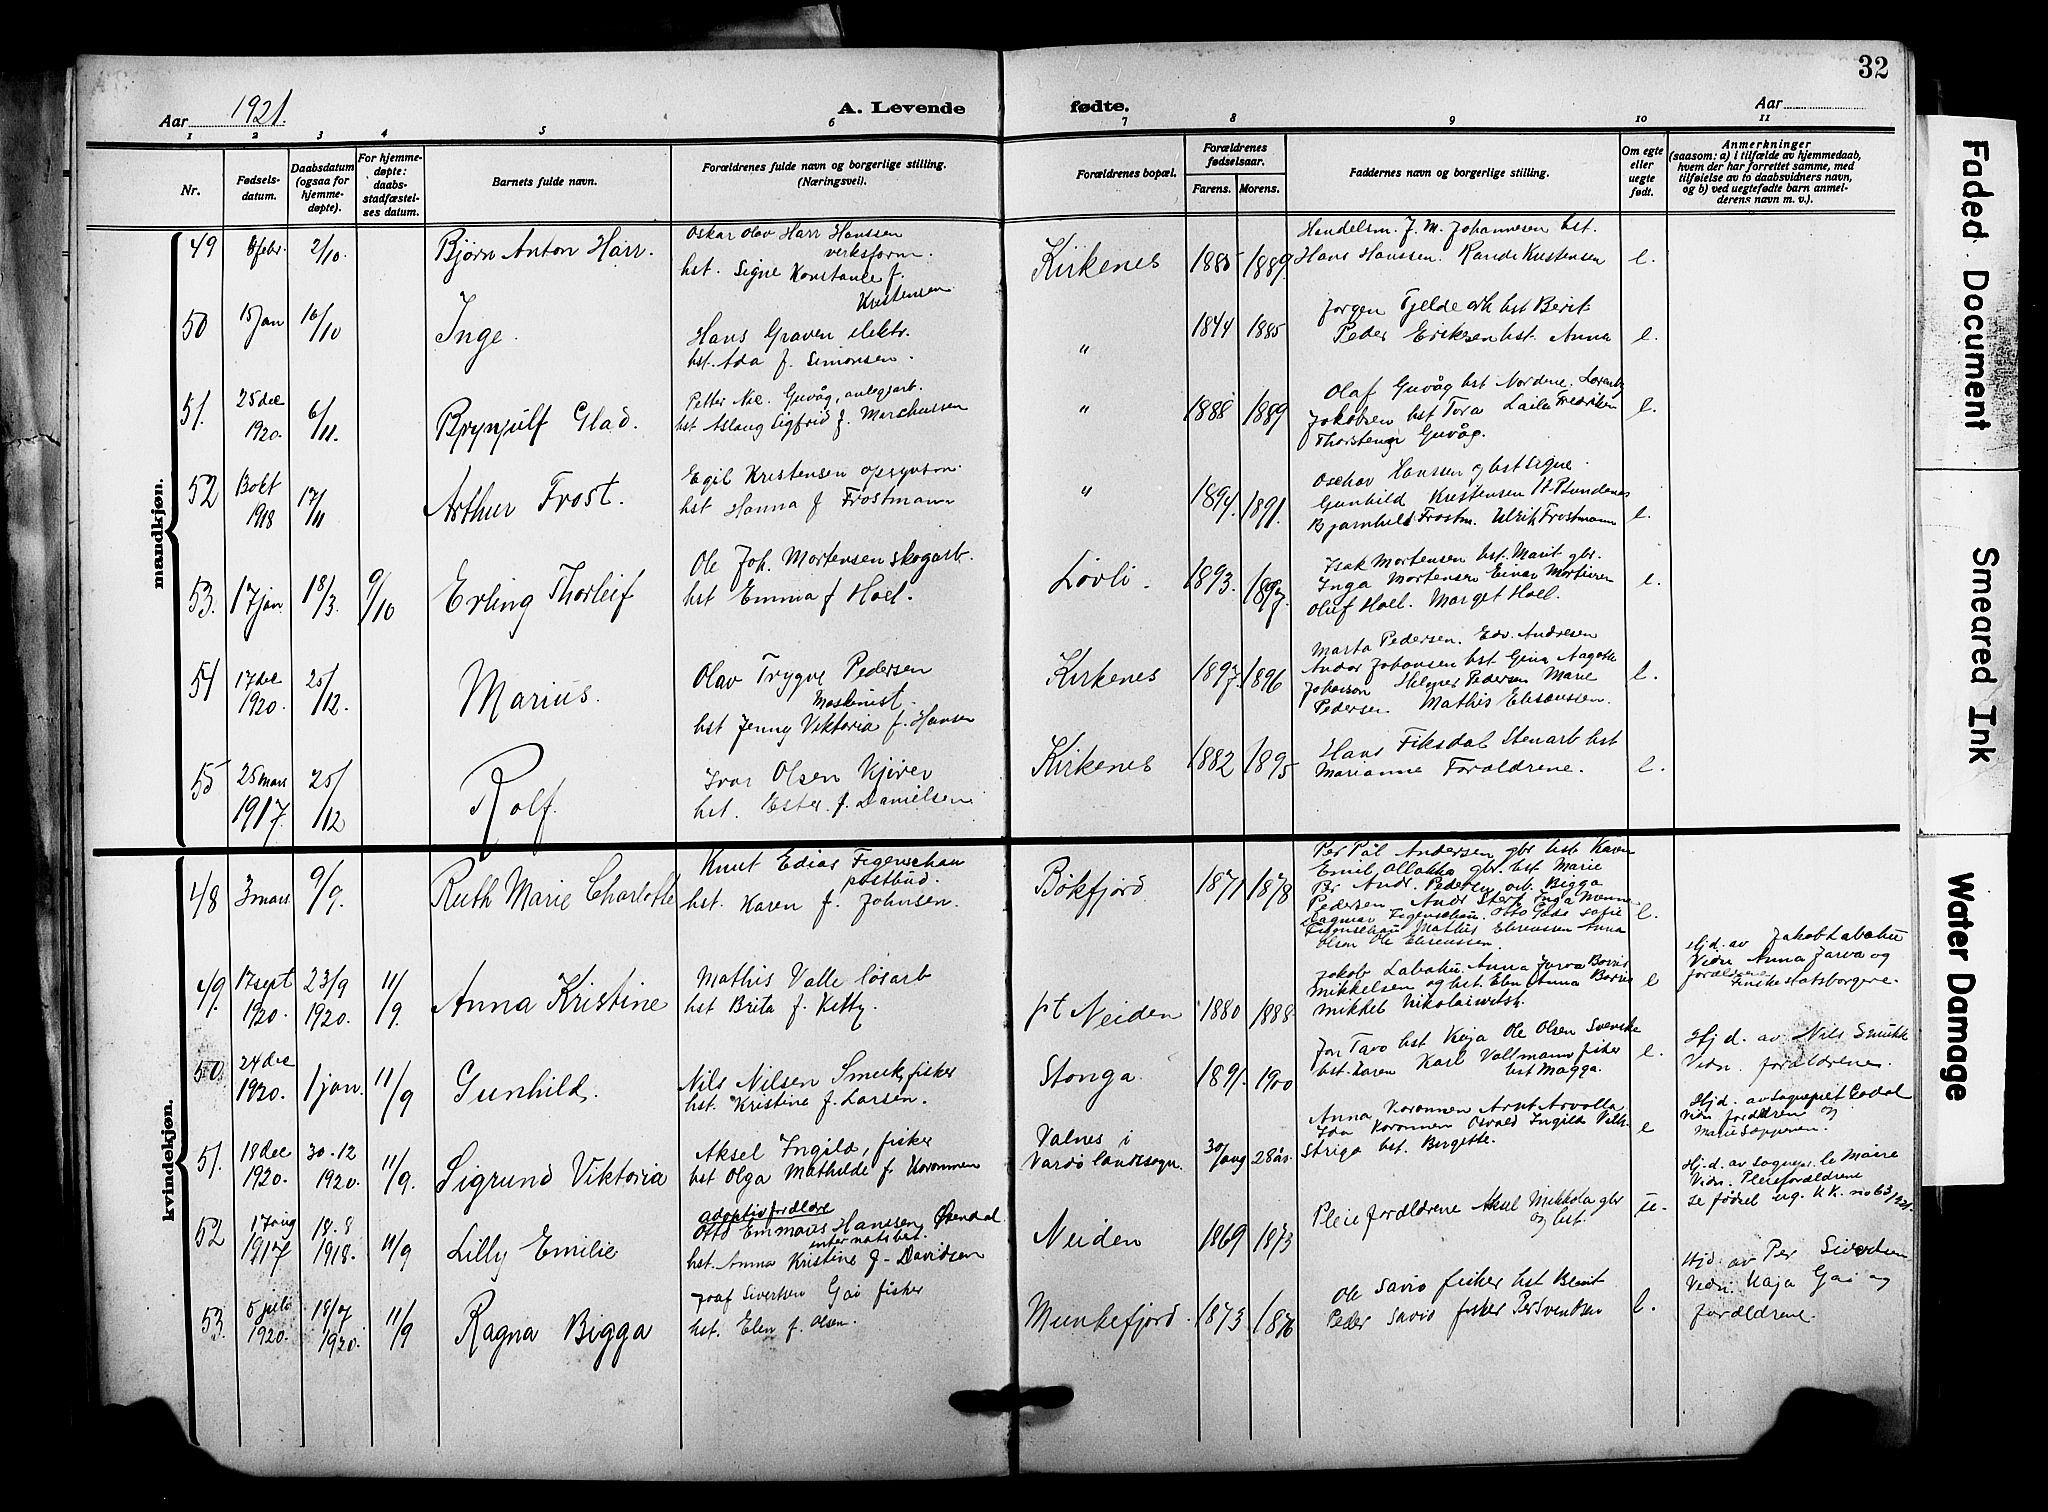 32
Aar 1921.
A. Levende fødte.
Aar
1 2 3 4 5 6 7 8 9 10 11
Nr.
Fødsels-
datum.
Daabsdatum
(ogsaa for
hjemme-
døpte).
For hjemme-
døpte:
daabs-
stadfæstel-
ses datum.
Barnets fulde navn.
Forældrenes fulde navn og borgerlige stilling.
(Næringsvei).
Forældrenes bopæl.
Forældrenes
fødselsaar.
Farens. Morens.
Faddernes navn og borgerlige stilling.
Om egte
eller
uegte
født.
Anmerkninger
(saasom: a) i tilfælde av hjemmedaab,
hvem der har forrettet samme, med
tilføielse av to daabsvidners navn,
og b) ved uegtefødte barn anmel-
derens navn m. v.).
mandkjøn.
49 febr. 2/10 Bjørn Anton Harr.
Oskar Olav Harr Hanssen
verksform.
hst. Signe Konstanse f.
Kristensen
Kirkenes 1885 1889
Handelsm. J. M. Johannesen hst.
Hans Hanssen. Randi Kristensen
e.
50 15 jan 16/10 Inge.
Hans Graven elektr.
hst. Ada f. Simonsen.
" 1844 1885
Jørgen Tjelde arb hst Berit
Peder Eriksen hst. Anna
e.
51. 25 dec 1920. 6/11. Brynjulf Glad.
Petter Nic. Guvåg, anlegsarb.
hst Aslaug Sigfrid f. Marchussen
" 1888 1889
Olaf Guvåg hst Nordene.
Jakobsen hst Tora Laila Fredriksen
Thorstein Guvåg.
e.
52 13 okt 1918 17/11 Arthur Frost.
Egil Kristensen opsynsm.
hst Hanna f Frostmann
" 1894. 1891.
Oschar Hanssen og hst Signe
Gunhild Kristensen
Bjarnhild Frostm. Ulrik Frostmann
e.
53. 17 jan. 18/3. 9/10 Erling Thorleif
Ole Joh. Mortensen skogarb.
hst Emma f Hoel.
Lövli. 1893. 1897.
Isak Mortensen hst. Marit gbr.
Inga Mortensen Einar Mortensen
Oluf Hoel. Marget Hoel.
e.
54 17 dec 1920. 25/12. Marius.
Olav Trygve Pedersen
Maskinist.
hst Jenny Viktoria f. Hansen
Kirkenes 1897. 1896
Marta Pedersen. Edv. Andresen
Andor Johansen hst Gina Aagotte
Johanson Helmer Pedersen Marie
Pedersen. Mathis Eliseussen.
e.
55 25 mars 1917. 25/12 Rolf.
Ivar Olsen Kjirer
hst. Ester f. Danielsen
Kirkenes 1882 1895
Hans Fiksdal Stenarb hst
Marianne Foraldrene.
e.
kvindekjøn.
48 3 mars 9/9. Ruth Marie Charlotte
Knut Edias Figenschau
postbud.
hst. Karen f. Johnsen.
Bökfjord 1871 1878
Per Pål Andersen gbr hst Karen
Emil Ollakka gbr. hst Marie
Per Andr. Pedersen arb. Bigga
Pedersen Andr Sterk Inga Monne
Dagmar Figenschau. Otto Gade Sofie
Figenschau Mathis Eliseussen Anna
Olsen Ole Eliseussen.
e.
49. 17 sept 1920. 23/9 1920. 11/9. Anna Kristine
Mathis Valle løsarb
hst Brita f. Kitty.
pt Neiden 1880 1888
Jakob Labahu. Anna Jarva Boris
Mikkelsen og hst. Elen Anna Boris
Mikkel Nikolaiwitsh.
e
Hjd. av Jakob Labahu
Vidn Anna Jarva og
foreldrene
Finske statsborgere.
50 24 dec 1920. 1 jan. 11/9 Gunhild.
Nils Nilsen Smuk, fisker
hst. Kristine f. Larsen.
Stonga. 1891. 1900
Jon Tavo hst Keija Ole Olsen Svenske
hst. Karen Karl Valtmann fisker
hst Magga.
e.
Hjd. av Nils Smukk
Vidn. foraldrene.
51. 18 dec 1920. 30-12 1920. 11/9. Sigrund Viktoria
Aksel Ingilä, fisker
hst Olga Mathilde f Koronnen
Valnes i
Vardö landsogn. 30/aug 28 år.
Anna Koronnen Arnt Arvolla
Ida Koronnen Osvald Ingilä Vilh.
Striga hst. Bergette.
e
Hjd. av
Vidn foraldrene og
Marie Seppenen.
52 17 aug 1917 18-8 1918. 11/9 Lilly Emilie
adoptivforeldre
Otto Emmaus Hanssen Øxendal
internatsbest.
hst. Anna Kristine f. Davidsen
Neiden 1869 1873
Pleieforældrene Aksel Mikkola gbr
og hst.
u.
Hj.d. av sognepr. le Maire
Vidn. Pleieforældrene
se fødsel rg. KK. no 63/1921.
53. 5 juli 1920. 18/07 1920. 11/9 Ragna Bigga
Joaf Sivertsen Gai fisker
hst. Elen f. Olsen.
Munkefjord. 1873 1876
Ole Savio fisker hst Berit
Peder Savio fisker Per Svendsen
e.
Hjd av Per Sivertsen
Vidn. Kaja Gai og
forældrene.
Faded Document
Smeared Ink
Water Damage